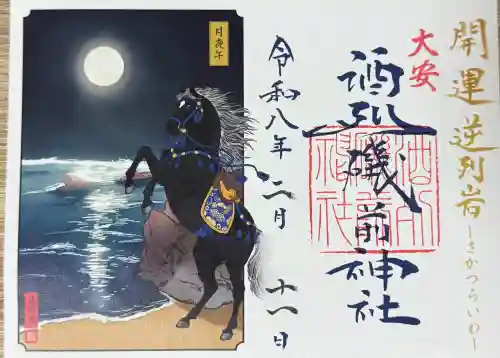 開運 逆列岩
―さかつらいわ―
大安
酒列磯前神社
令和八年二月 十一日
月夜午